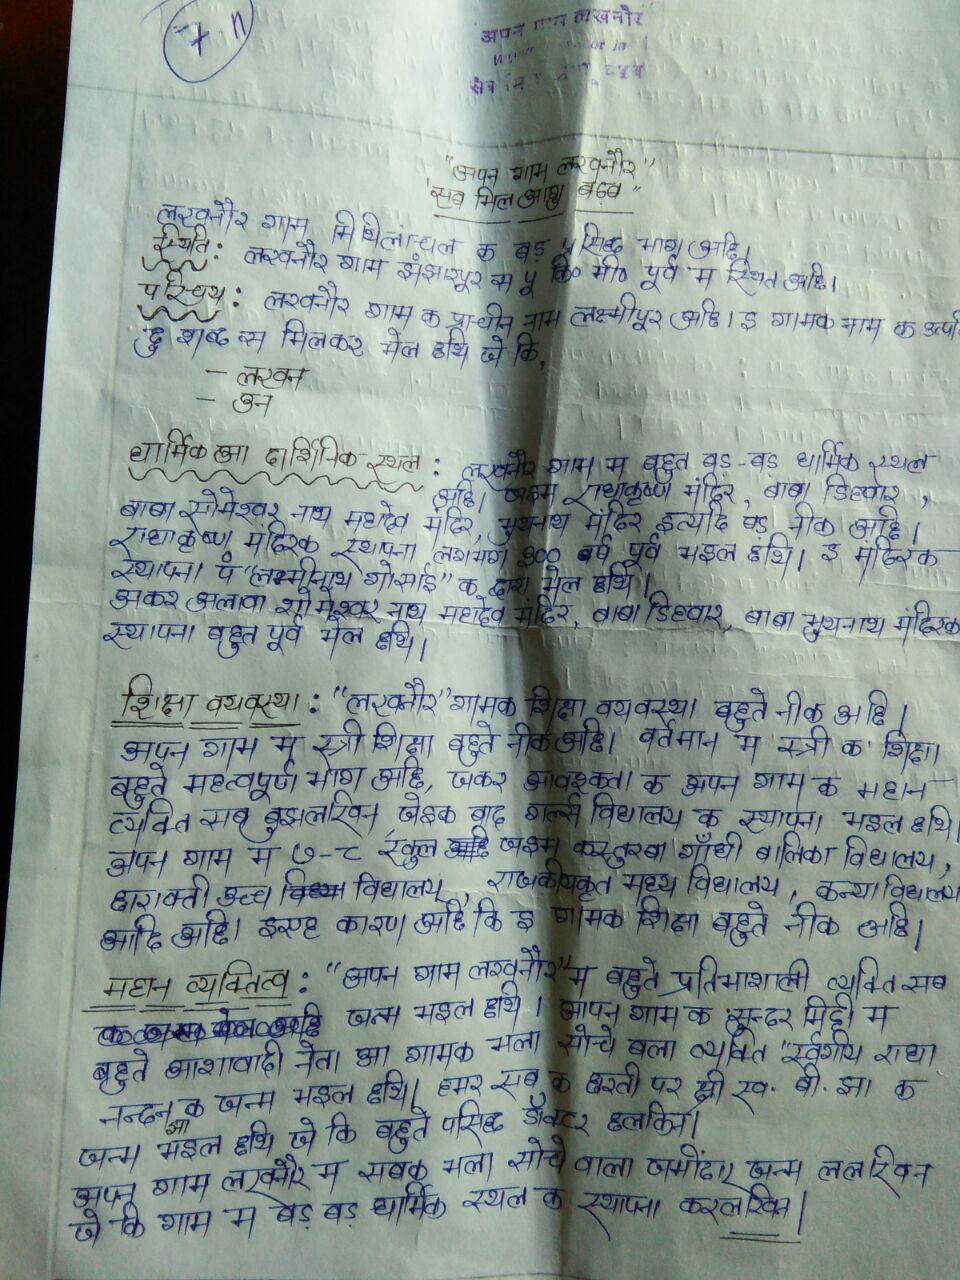 7.11
अपन गाम लखनौर
"अपन गाम लखनौर"
"सब मिल आशु बढ़ब"
लखनौर गाम मिथिलान्चल क बड़ प्रसिद्ध भाग अछि।
स्थिति: लखनौर गाम झंझारपूर स पू कि० मी० पूर्व म स्थित अछि।
परिचय: लखनौर गाम क प्राचीन नाम लक्ष्मीपूर अछि। इ गामक नाम क उत्पति
दु शब्द स मिलकर भेल छथि जे कि,
- लखन
- उन
धार्मिक आ दार्शिनिक स्थल: लखनौर गाम म बहुत बड़-बड़ धार्मिक स्थल
अछि। जइम राधाकृष्ण मंदिर, बाबा डिहवार,
बाबा सोमेश्वर नाथ महादेव मंदिर, मुथनाथ मंदिर इत्यादि बड़ नीक अछि।
राधाकृष्ण मंदिरक स्थापना लगभग ३०० बर्ष पूर्व भइल छथि। इ मंदिरक
स्थापना पं "लक्ष्मीनाथ गोसाई" क द्वारा भेल छथि।
अकर अलावा सोमेश्वर नाथ महादेव मंदिर, बाबा डिहवार, बाबा मुथनाथ मंदिरक
स्थापना बहुत पूर्व भेल छथि।
शिक्षा व्यवस्था: "लखनौर" गामक शिक्षा व्यवस्था बहुते नीक अछि।
अपन गाम म स्त्री शिक्षा बहुते नीक अछि। वर्तमान म स्त्री क शिक्षा
बहुते महत्वपूर्ण भाग अछि, जकर आवश्कता क अपन गाम क महान
व्यक्ति सब बुझलखिन जेइक बाद गर्ल्स विद्यालय क स्थापना भइल छथि।
अपन गाम म ७-८ स्कुल जइम कस्तुरबा गाँधी बालिका विद्यालय,
द्वारावती उच्च विद्यालय, राजकीयकृत मध्य विद्यालय, कन्या विद्यालय
आदि अछि। इएह कारण अछि कि इ गामक शिक्षा बहुते नीक अछि।
महान व्यक्तित्व: "अपन गाम लखनौर" म बहुते प्रतिभाशाली व्यक्ति सब
जन्म भइल छथि। अपन गाम क सुन्दर मिट्टी म
बहुते आशावादी नेता आ गामक भला सोचे बला व्यक्ति "स्वर्गीय राधा
नन्दन क जन्म भइल छथि। हमर सब क धरती पर श्री स्व. बी. झा क
जन्म भइल छथि जे कि बहुते प्रसिद्ध डॉक्टर छलकिन।
अपन गाम लखनौर म सबक भला सोचे वाला जमींदार जन्म ललखिन
जे कि गाम म बड़ बड़ धार्मिक स्थल क स्थापना करलखिन।